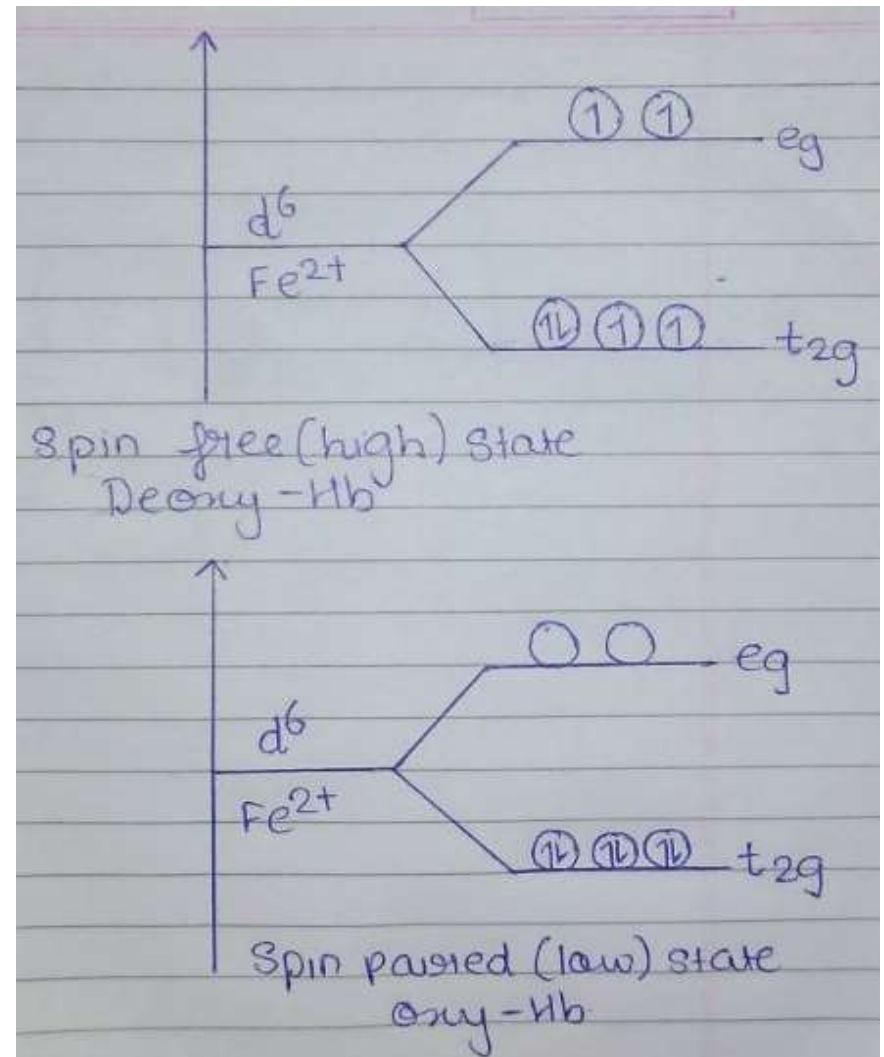 ① ① eg
d⁶
Fe²⁺
⥮ ① ① t₂g
Spin free (high) State
Deoxy-Hb
eg
d⁶
Fe²⁺
⥮ ⥮ ⥮ t₂g
Spin paired (low) state
Oxy-Hb